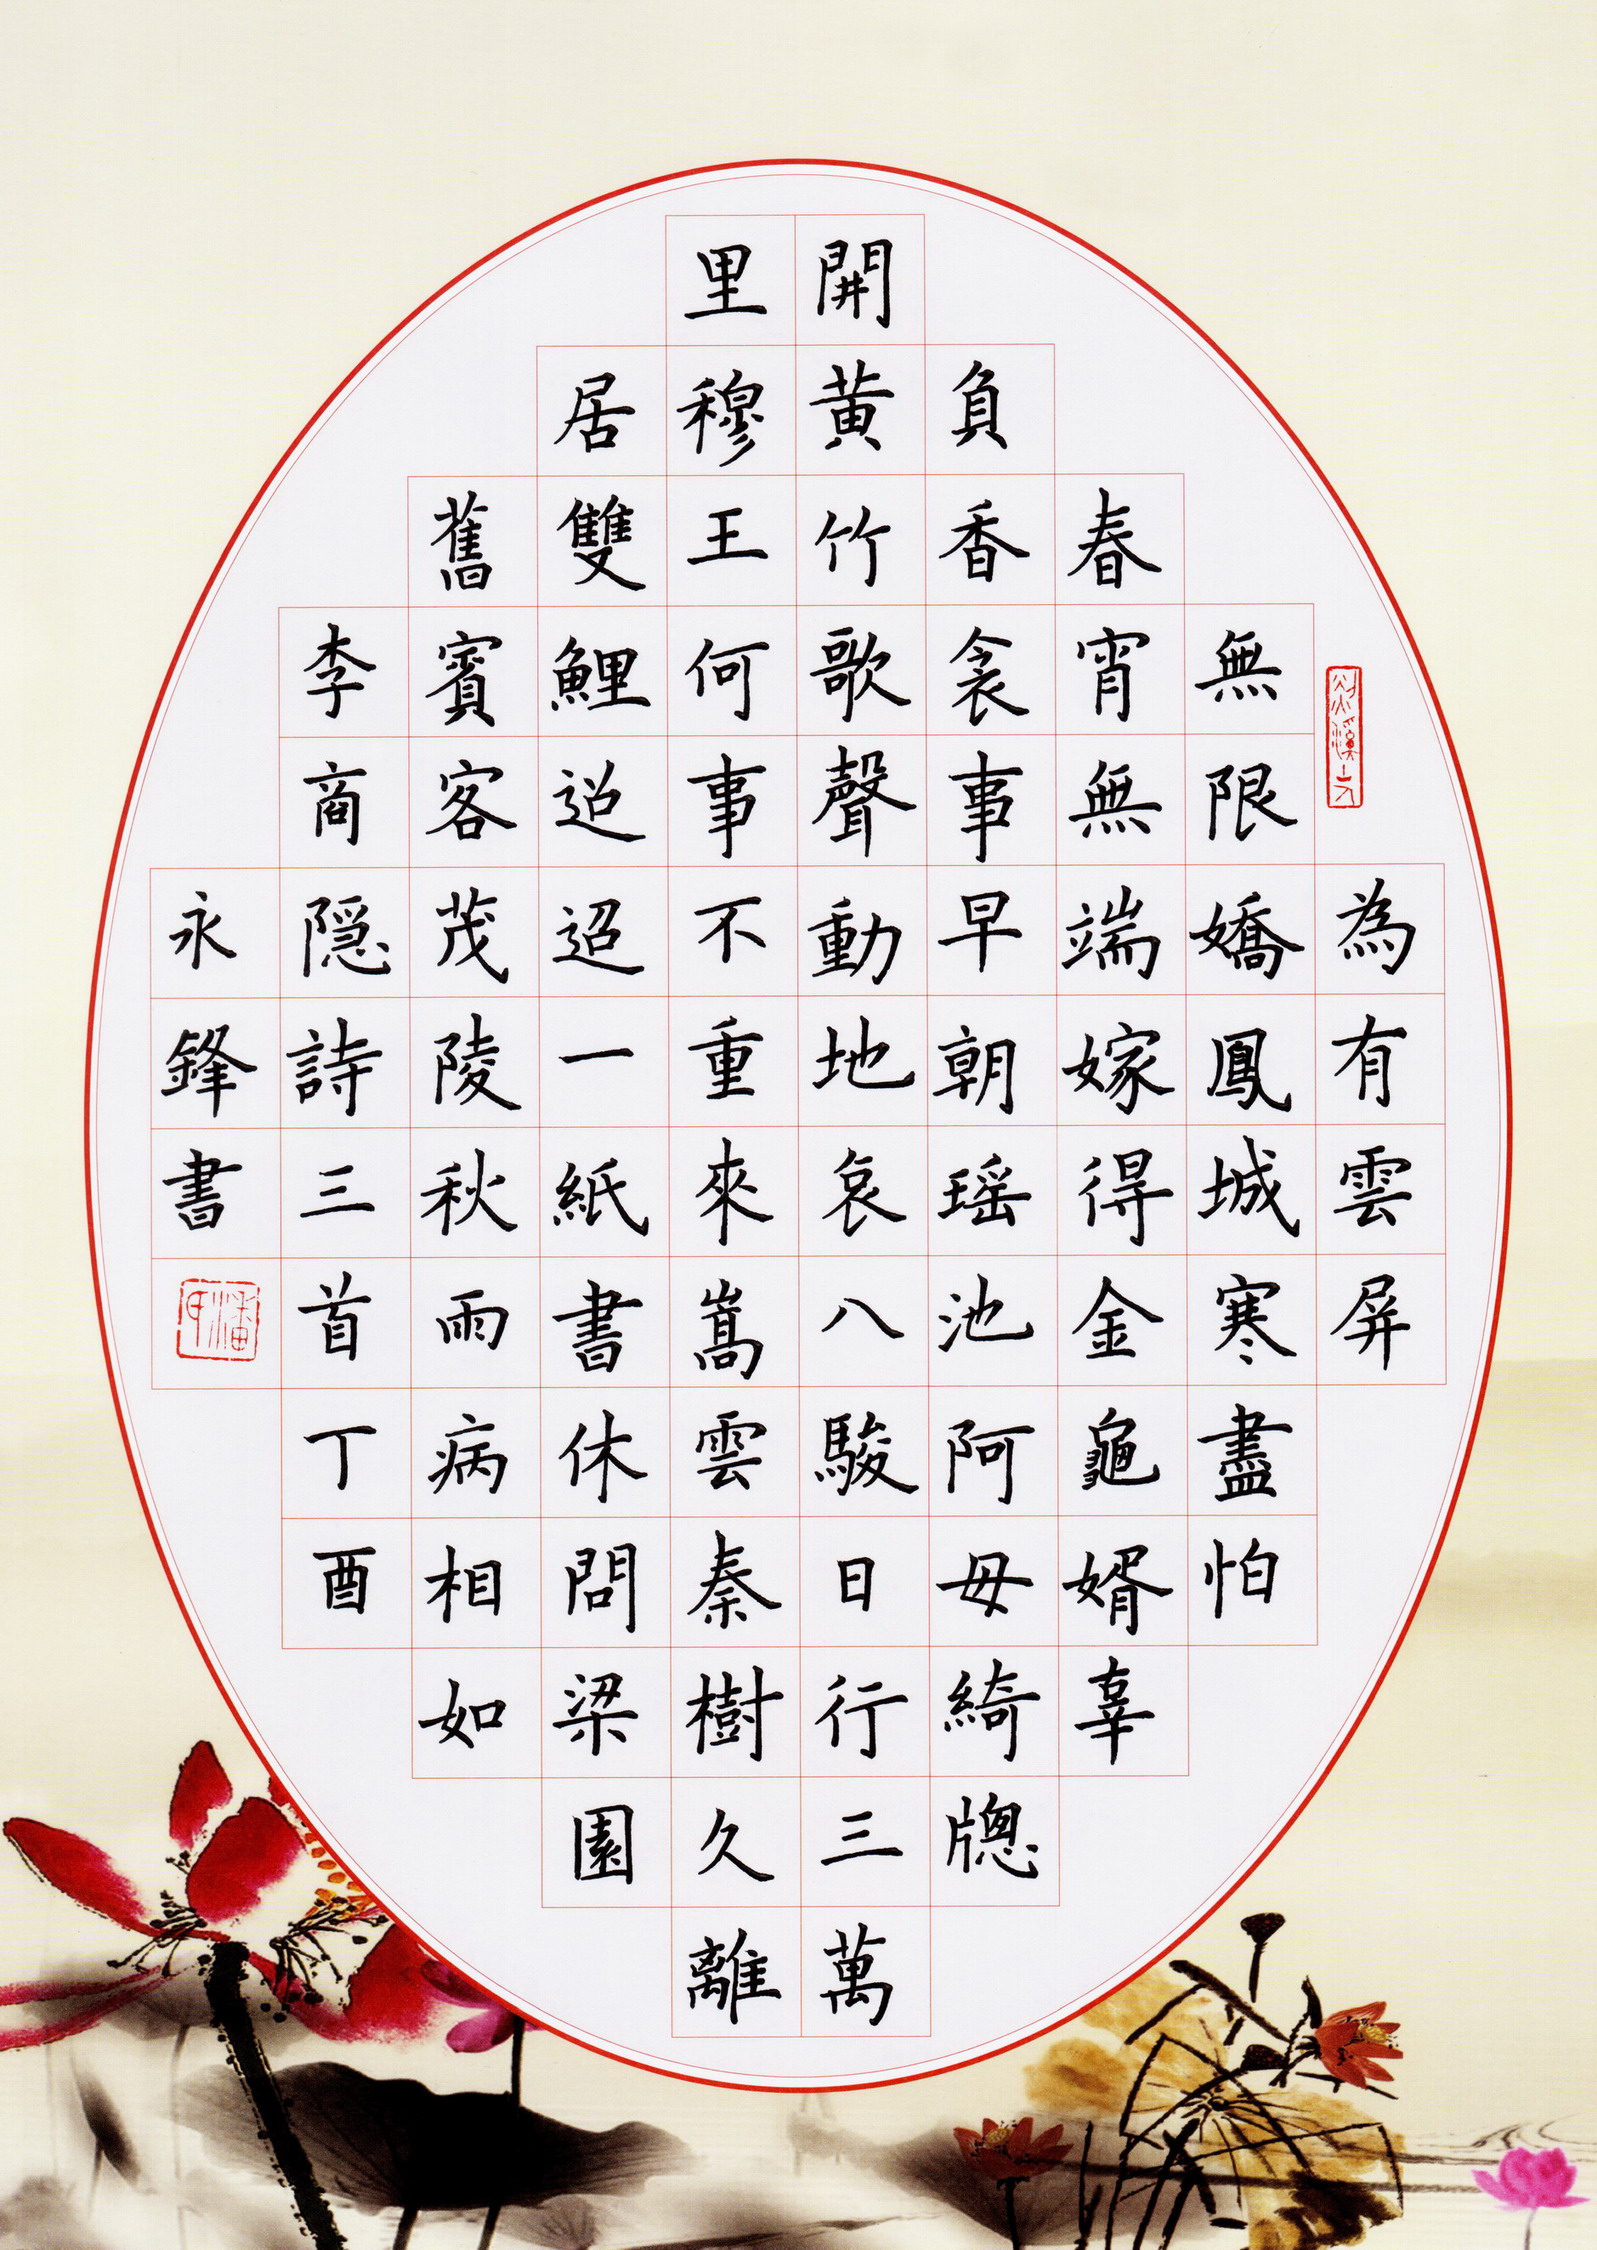 為有雲屏
無限嬌鳳城寒盡怕
春宵無端嫁得金龜婿辜
負香衾事早朝瑶池阿母綺牎
開黃竹歌聲動地哀八駿日行三萬
里穆王何事不重來嵩雲秦樹久離
居雙鯉迢迢一紙書休問梁園
舊賓客茂陵秋雨病相如
李商隠詩三首丁酉
永鋒書